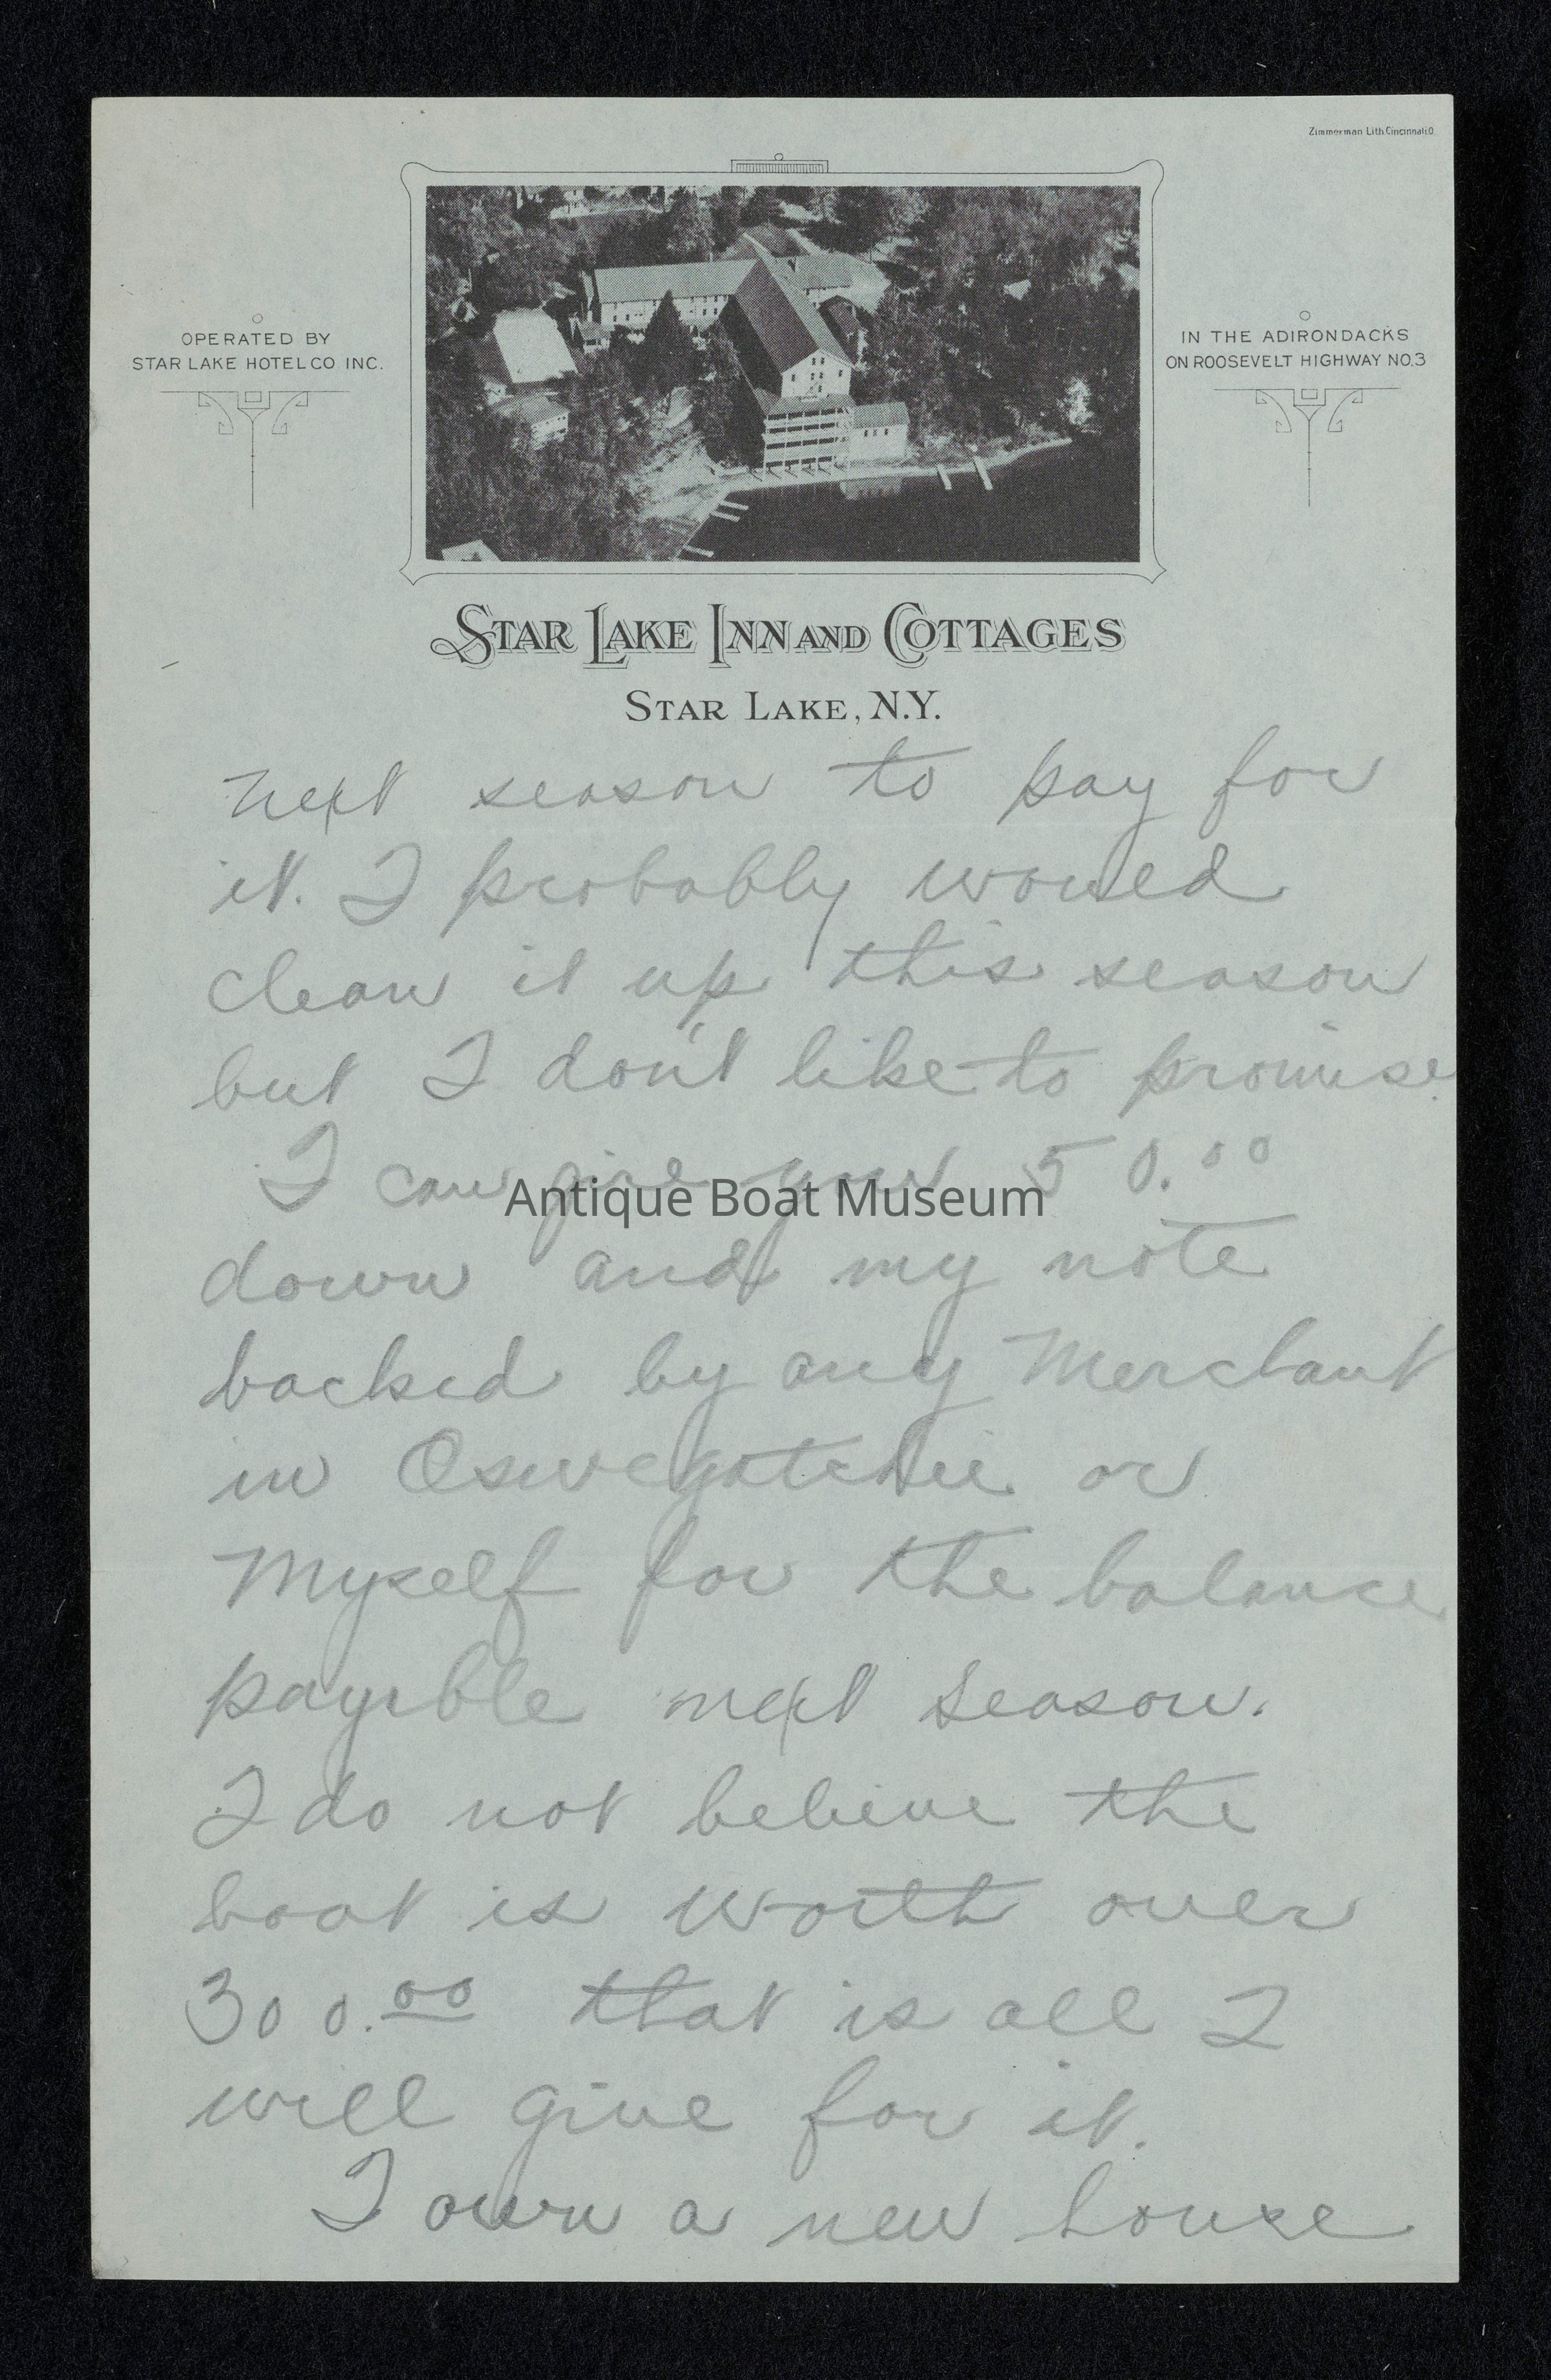 Zimmerman Lith Cincinnati.O.
OPERATED BY
STAR LAKE HOTEL CO INC.
IN THE ADIRONDACKS
ON ROOSEVELT HIGHWAY NO.3
STAR LAKE INN AND COTTAGES
STAR LAKE, N.Y.
next season to pay for
it. I probably would
clean it up this season
but I don't like to promise.
I can give you 50.00
Antique Boat Museum
down and my note
backed by any Merchant
in Oswegatchie or
Myself for the balance
payible next season.
I do not believe the
boat is worth over
300.00 that is all I
will give for it.
I own a new house